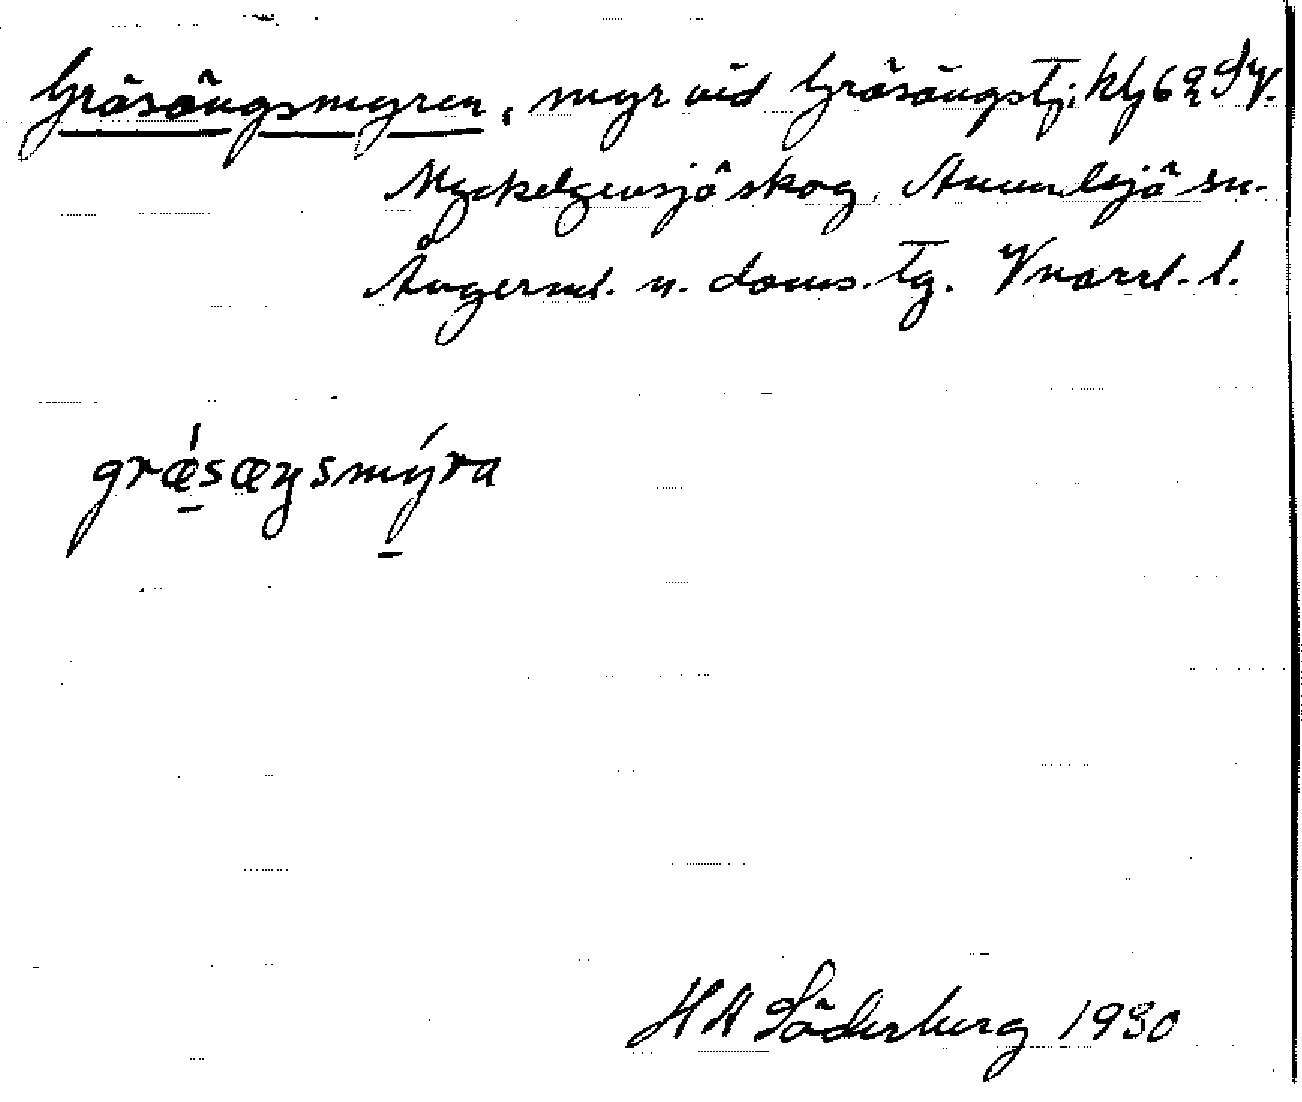 Gräsängsmyren, myr vid Gräsängstj. kbl 62 SV.
Myckelgensjö skog, Anundsjö sn.
Ångerml. n. doms. tg. Vnorrl. l.
grǽsæŋsmýra
H A Söderberg 1930